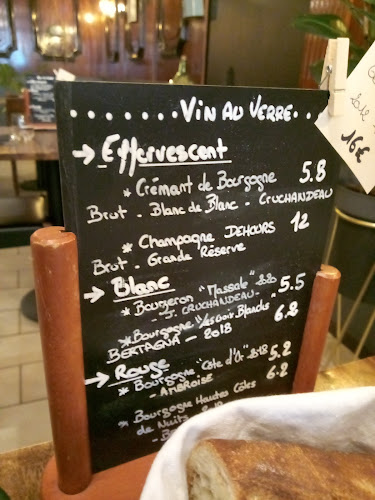 .......VIN AU VERRE...
→ Effervescent
* Crémant de Bourgogne 5.8
Brut - Blanc de Blanc - CRUCHANDEAU
* Champagne DEHOURS 12
Brut - Grande Réserve
→ Blanc
* Bourgeron "Massale" 2020 5.5
- J. CRUCHANDEAU -
* Bourgogne "Les Croix Blanches" 6.2
BERTAGNA - 2018
→ Rouge
* Bourgogne "Côte d'Or" 2018 5.2
- AMBROISE 6.2
* Bourgogne Hautes Côtes
de Nuits
16€